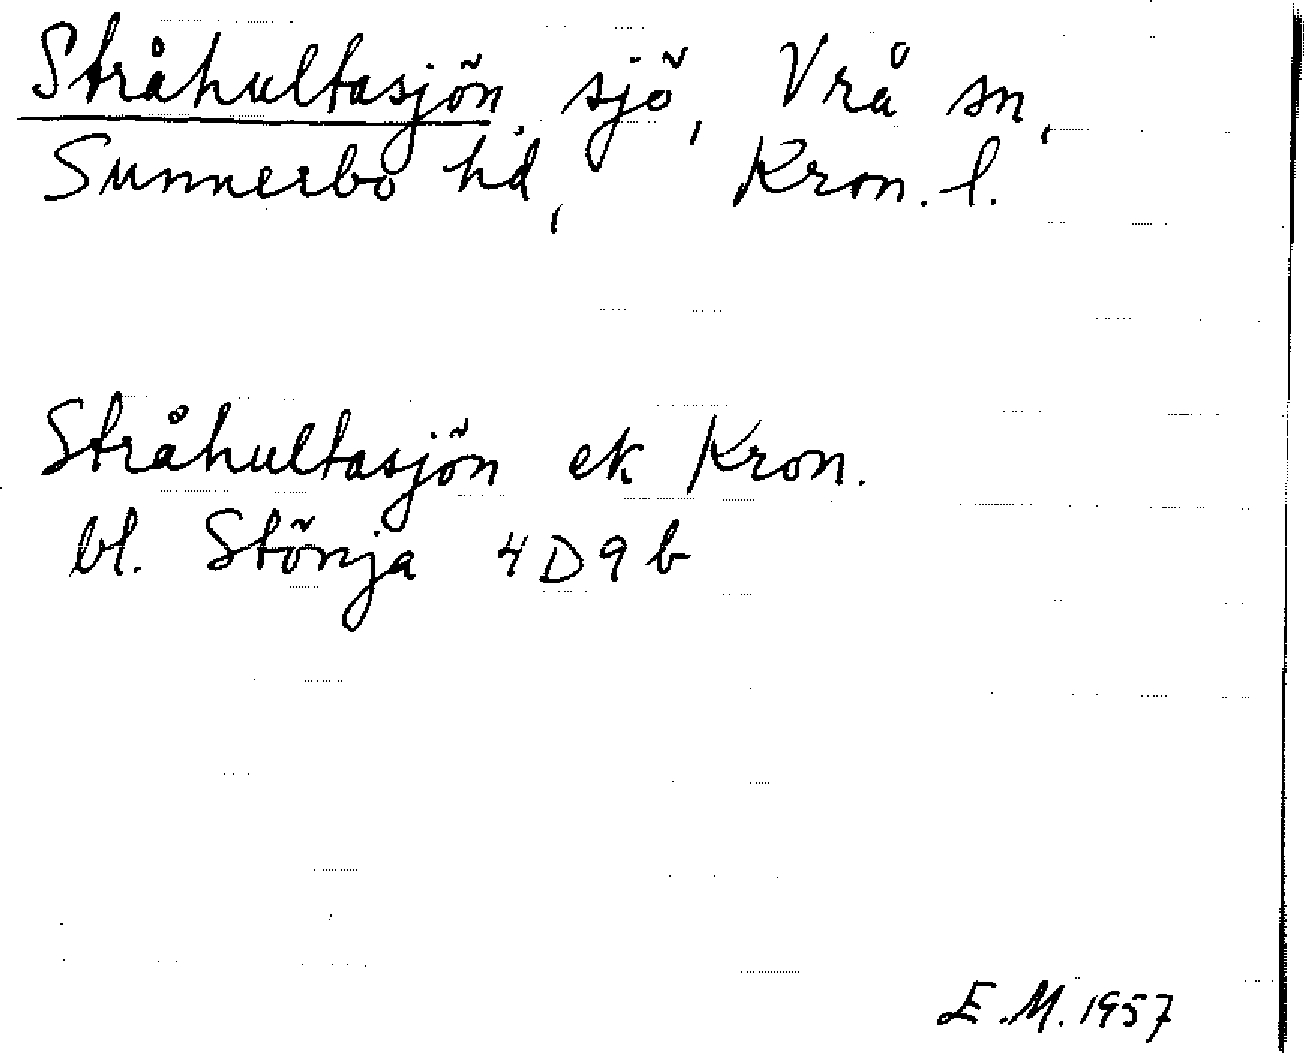 Stråhultasjön, sjö, Vrå sn,
Sunnerbo hd, Kron. l.
Stråhultasjön ek Kron.
bl. Stönja 4D9b
E.M. 1957